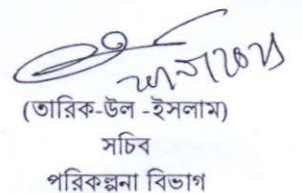 (তারিক-উল -ইসলাম)
সচিব
পরিকল্পনা বিভাগ